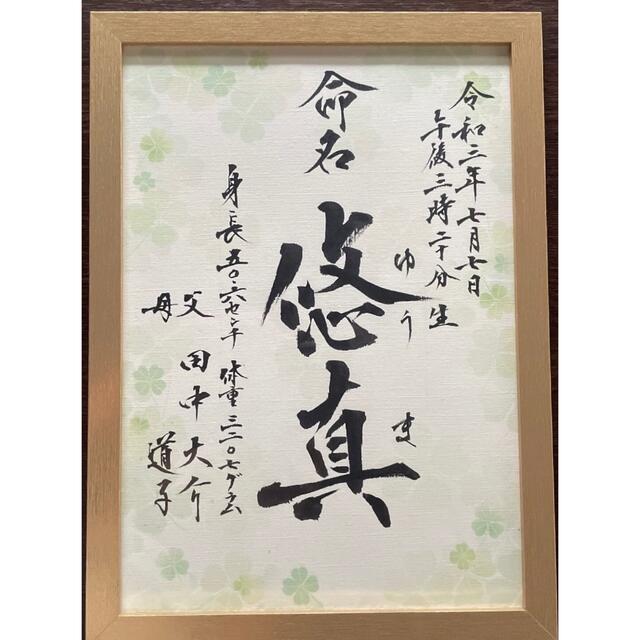 令和三年七月七日
午後三時二十分生
命名
悠真
ゆうま
身長五〇・六センチ 体重三二〇七グラム
父 田中大介
母 道子